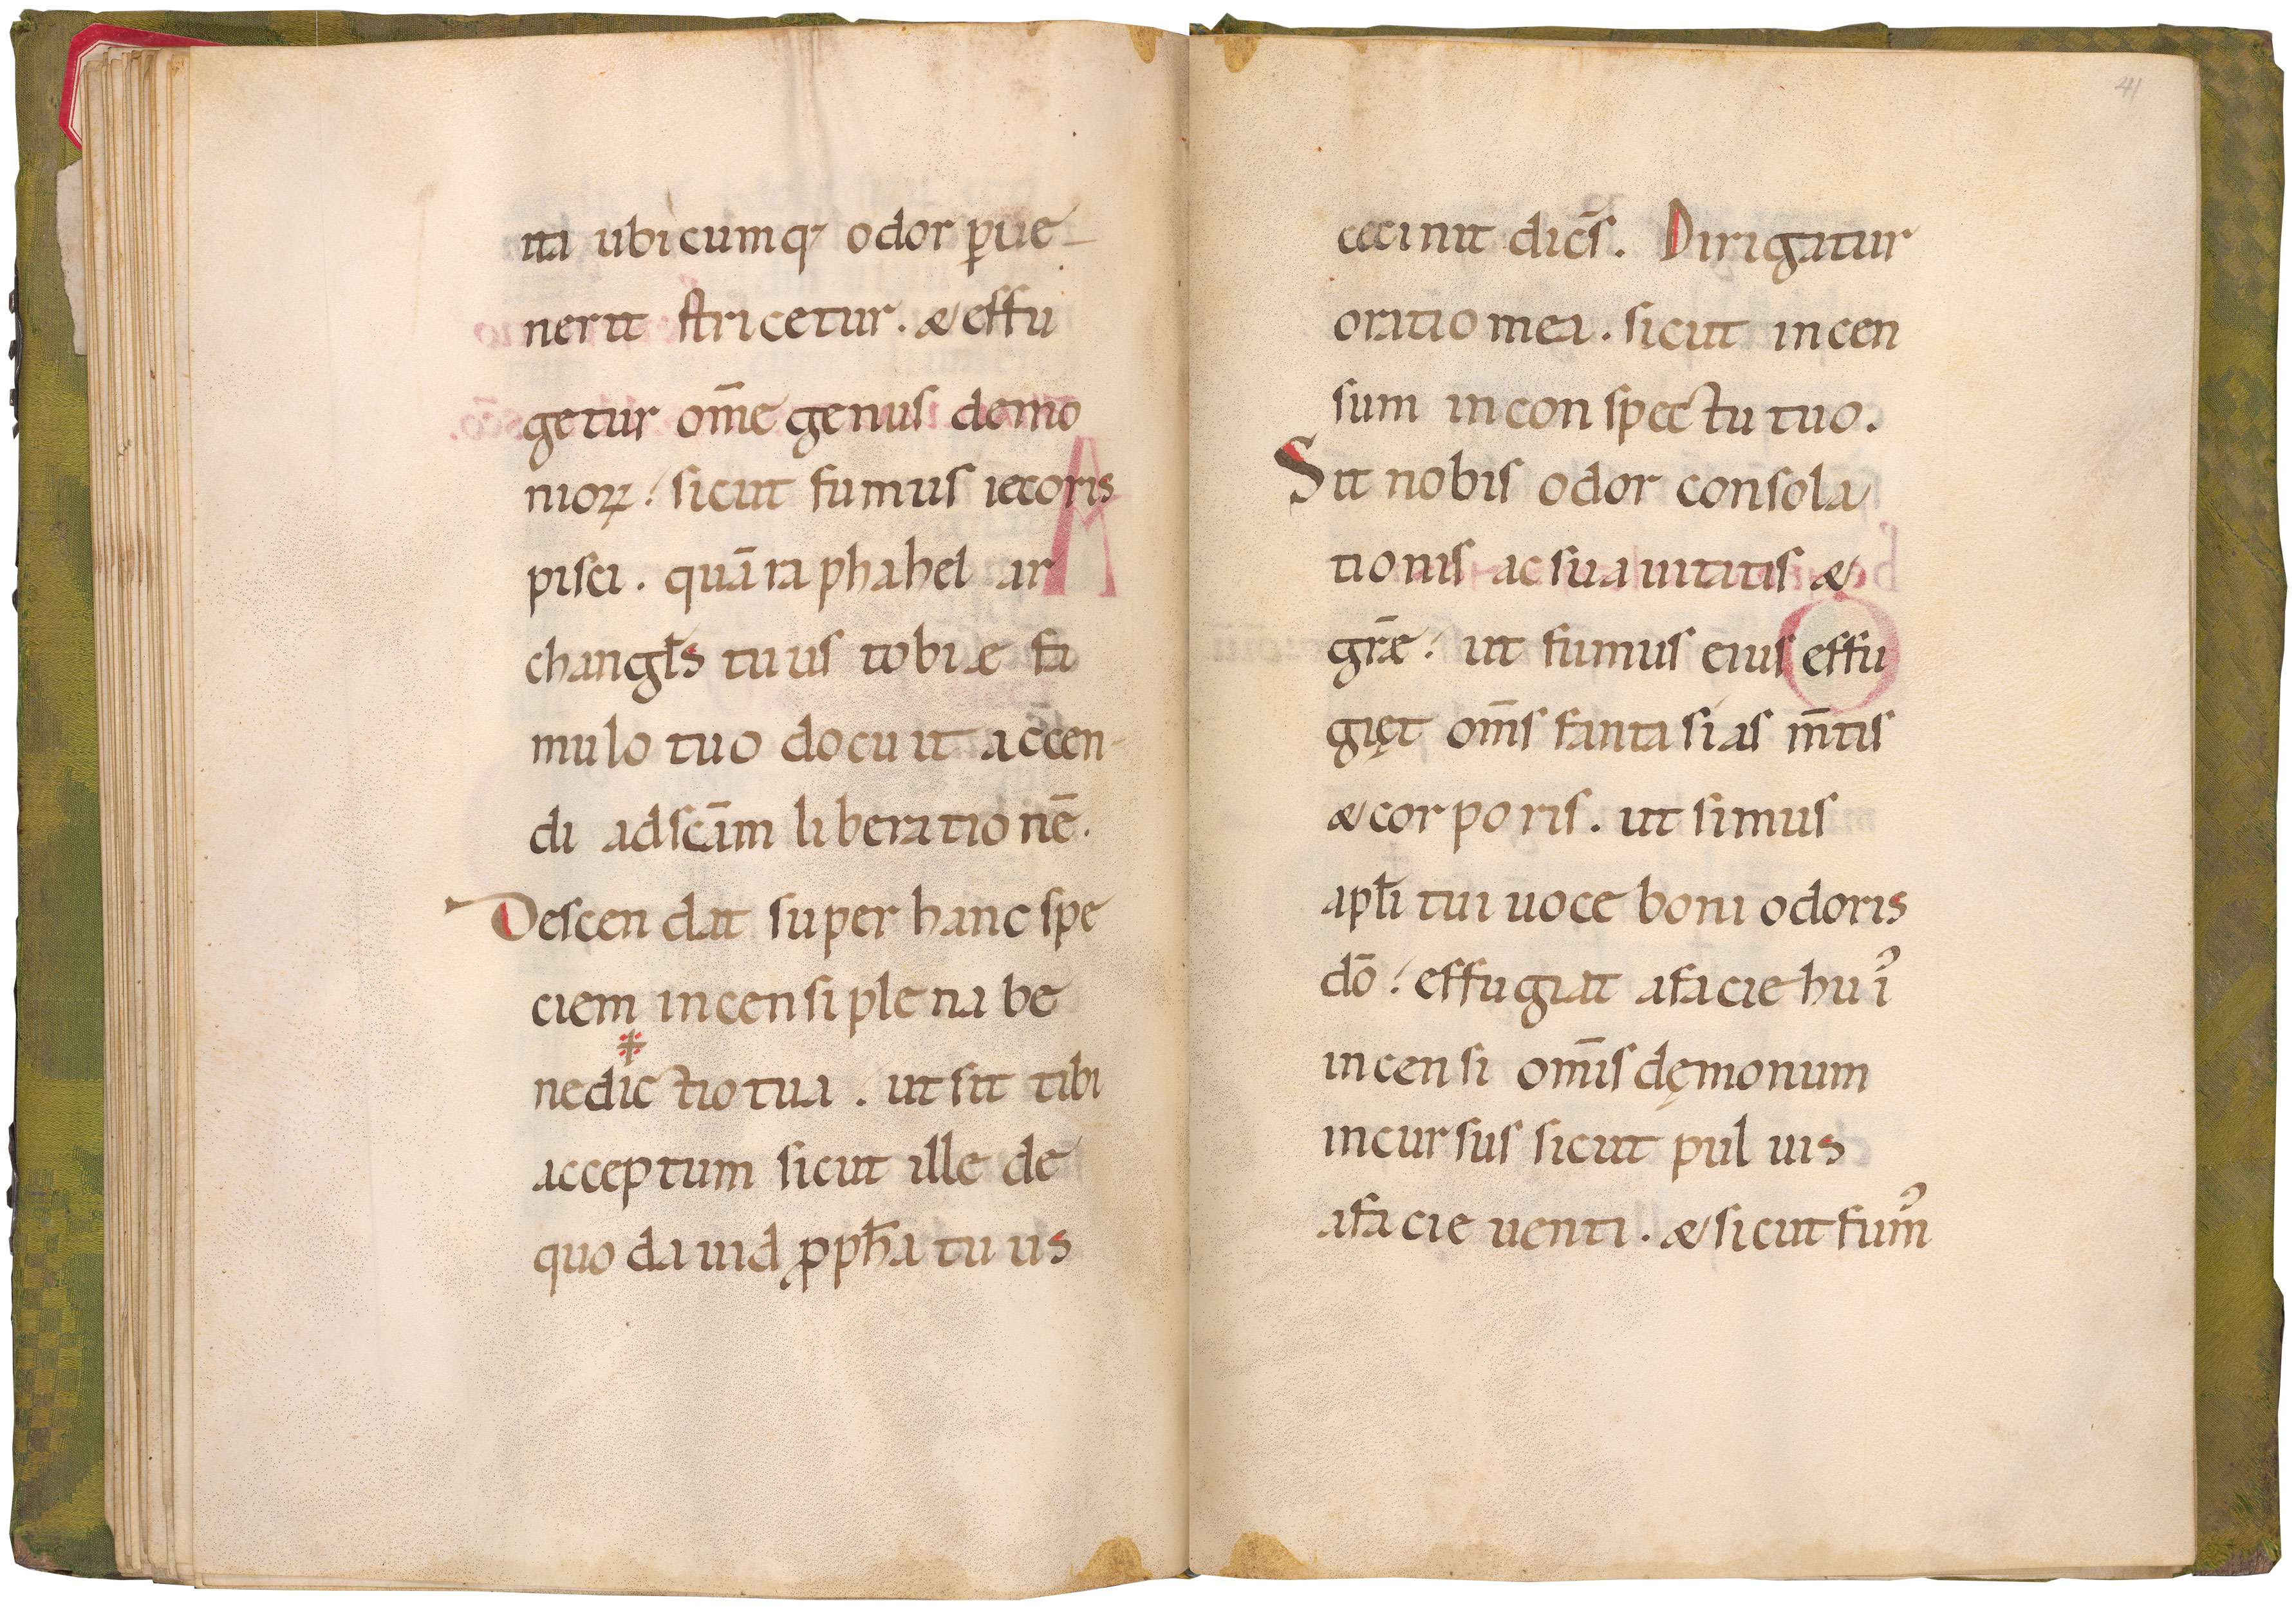 ita ubicumq; odor ꝑue-
nerit stricetur. & effu
getur om̄e genus demo
nioꝝ. sicut fumus iecoris
pisci. quā raphahel ar
changl̄s tuus tobiæ fa
mulo tuo docuit accen-
di ad scām liberationē.
Descendat super hanc spe
ciem incensi plena be
nedictio tua. ut sit tibi
acceptum sicut ille de
quo dauid ꝓph̄a tuus
41
cecinit dicēs. Dirigatur
oratio mea. sicut incen
sum in conspectu tuo.
Sit nobis odor consola
tionis ac suauitatis &
grāe. ut fumus eius effu
gięt om̄s fantasias m̄tis
& corporis. ut simus
apl̄i tui uoce boni odoris
dō. effugiat a facie huiꝰ
incensi om̄is dęmonum
incursus sicut puluis
a facie uenti. & sicut fumꝰ